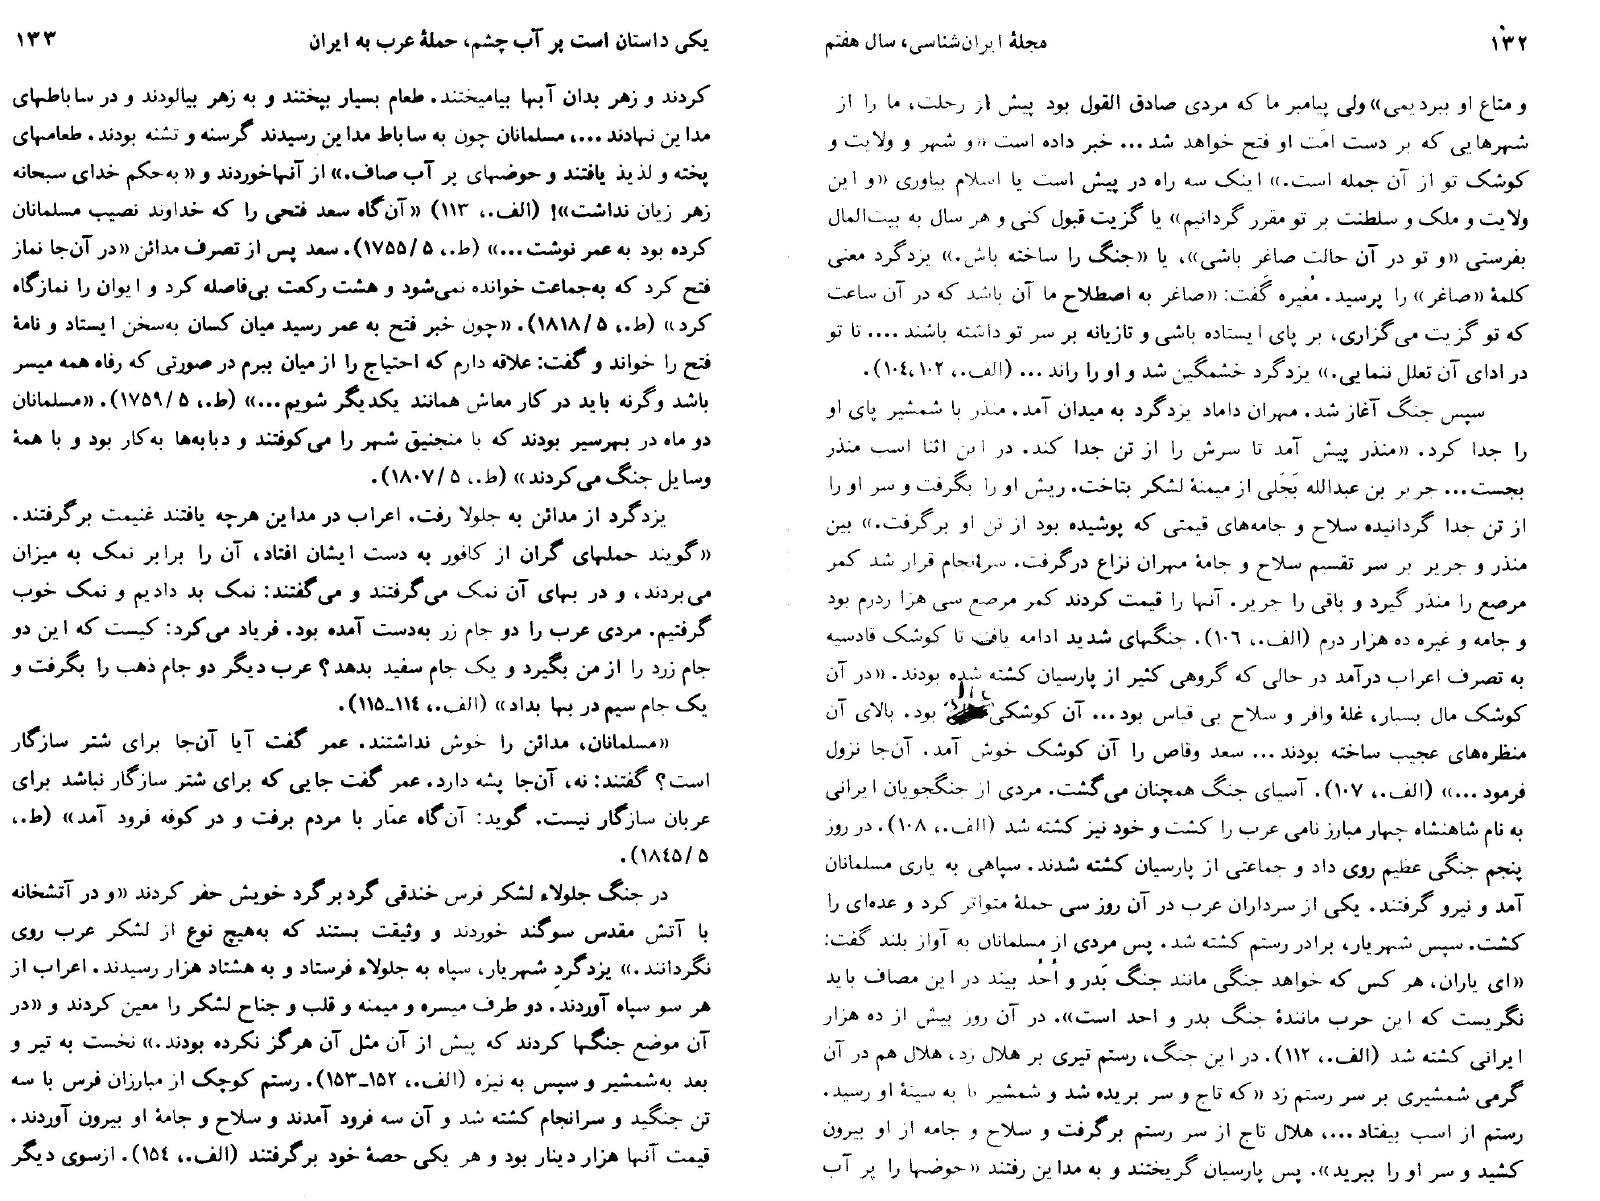 ۱۳۲
مجلهٔ ایران‌شناسی، سال هفتم
و متاع او ببردیمی» ولی پیامبر ما که مردی صادق القول بود پیش از رحلت، ما را از
شهرهایی که بر دست امّت او فتح خواهد شد... خبر داده است «و شهر و ولایت و
کوشک تو از آن جمله است.» اینک سه راه در پیش است یا اسلام بیاوری «و این
ولایت و ملک و سلطنت بر تو مقرر گردانیم» یا گزیت قبول کنی و هر سال به بیت‌المال
بفرستی «و تو در آن حالت صاغر باشی»، یا «جنگ را ساخته باش.» یزدگرد معنی
کلمهٔ «صاغر» را پرسید. مُغیره گفت: «صاغر به اصطلاح ما آن باشد که در آن ساعت
که تو گزیت می‌گزاری، بر پای ایستاده باشی و تازیانه بر سر تو داشته باشند.... تا تو
در ادای آن تعلل ننمایی.» یزدگرد خشمگین شد و او را راند... (الف.، ۱۰۲، ۱۰۴).
سپس جنگ آغاز شد. مهران داماد یزدگرد به میدان آمد. منذر با شمشیر پای او
را جدا کرد. «منذر پیش آمد تا سرش را از تن جدا کند. در این اثنا اسب منذر
بجست... جریر بن عبدالله بَجَلی از میمنهٔ لشکر بتاخت. ریش او را بگرفت و سر او را
از تن جدا گردانیده سلاح و جامه‌های قیمتی که پوشیده بود از تن او برگرفت.» بین
منذر و جریر بر سر تقسیم سلاح و جامهٔ مهران نزاع درگرفت. سرانجام قرار شد کمر
مرصع را منذر گیرد و باقی را جریر. آنها را قیمت کردند کمر مرصع سی هزا ردرم بود
و جامه و غیره ده هزار درم (الف.، ۱۰۶). جنگهای شدید ادامه یافت تا کوشک قادسیه
به تصرف اعراب درآمد در حالی که گروهی کثیر از پارسیان کشته شده بودند. «در آن
کوشک مال بسیار، غلهٔ وافر و سلاح بی قیاس بود... آن کوشکی بود. بالای آن
منظره‌های عجیب ساخته بودند... سعد وقاص را آن کوشک خوش آمد. آن‌جا نزول
فرمود...» (الف.، ۱۰۷). آسیای جنگ همچنان می‌گشت. مردی از جنگجویان ایرانی
به نام شاهنشاه چهار مبارز نامی عرب را کشت و خود نیز کشته شد (الف.، ۱۰۸). در روز
پنجم جنگی عظیم روی داد و جماعتی از پارسیان کشته شدند. سپاهی به یاری مسلمانان
آمد و نیرو گرفتند. یکی از سرداران عرب در آن روز سی حملهٔ متواتر کرد و عده‌ای را
کشت. سپس شهریار، برادر رستم کشته شد. پس مردی از مسلمانان به آواز بلند گفت:
«ای یاران، هر کس که خواهد جنگی مانند جنگ بَدر و اُحُد بیند در این مصاف باید
نگریست که این حرب مانندهٔ جنگ بدر و احد است». در آن روز بیش از ده هزار
ایرانی کشته شد (الف.، ۱۱۲). در این جنگ، رستم تیری بر هلال زد، هلال هم در آن
گرمی شمشیری بر سر رستم زد «که تاج و سر بریده شد و شمشیر تا به سینهٔ او رسید.
رستم از اسب بیفتاد...، هلال تاج از سر رستم برگرفت و سلاح و جامه از او بیرون
کشید و سر او را ببرید». پس پارسیان گریختند و به مداین رفتند «حوضها را پر آب
یکی داستان است پر آب چشم، حملهٔ عرب به ایران
۱۳۳
کردند و زهر بدان آبها بیامیختند. طعام بسیار بپختند و به زهر بیالودند و در ساباطهای
مداین نهادند...، مسلمانان چون به ساباط مداین رسیدند گرسنه و تشنه بودند. طعامهای
پخته و لذیذ یافتند و حوضهای پر آب صاف.» از آنهاخوردند و «به‌حکم خدای سبحانه
زهر زیان نداشت»! (الف.، ۱۱۳) «آن‌گاه سعد فتحی را که خداوند نصیب مسلمانان
کرده بود به عمر نوشت...» (ط.، ۵/ ۱۷۵۵). سعد پس از تصرف مدائن «در آن‌جا نماز
فتح کرد که به‌جماعت خوانده نمی‌شود و هشت رکعت بی‌فاصله کرد و ایوان را نمازگاه
کرد» (ط.، ۵/ ۱۸۱۸). «چون خبر فتح به عمر رسید میان کسان به‌سخن ایستاد و نامهٔ
فتح را خواند و گفت: علاقه دارم که احتیاج را از میان ببرم در صورتی که رفاه همه میسر
باشد وگرنه باید در کار معاش همانند یکدیگر شویم...» (ط.، ۵/ ۱۷۵۹). «مسلمانان
دو ماه در بهرسیر بودند که با منجنیق شهر را می‌کوفتند و دبابه‌ها به‌کار بود و با همهٔ
وسایل جنگ می‌کردند» (ط.، ۵/ ۱۸۰۷).
یزدگرد از مدائن به جلولا رفت. اعراب در مداین هرچه یافتند غنیمت برگرفتند.
«گویند حملهای گران از کافور به دست ایشان افتاد، آن را برابر نمک به میزان
می‌بردند، و در بهای آن نمک می‌گرفتند و می‌گفتند: نمک بد دادیم و نمک خوب
گرفتیم. مردی عرب را دو جام زر به‌دست آمده بود. فریاد می‌کرد: کیست که این دو
جام زرد را از من بگیرد و یک جام سفید بدهد؟ عرب دیگر دو جام ذهب را بگرفت و
یک جام سیم در بها بداد» (الف.، ۱۱۴ـ۱۱۵).
«مسلمانان، مدائن را خوش نداشتند. عمر گفت آیا آن‌جا برای شتر سازگار
است؟ گفتند: نه، آن‌جا پشه دارد. عمر گفت جایی که برای شتر سازگار نباشد برای
عربان سازگار نیست. گوید: آن‌گاه عمّار با مردم برفت و در کوفه فرود آمد» (ط.،
۵/ ۱۸۴۵).
در جنگ جلولاء لشکر فرس خندقی گرد برگرد خویش حفر کردند «و در آتشخانه
با آتش مقدس سوگند خوردند و وثیقت بستند که به‌هیچ نوع از لشکر عرب روی
نگردانند.» یزدگردِ شهریار، سپاه به جلولاء فرستاد و به هشتاد هزار رسیدند. اعراب از
هر سو سپاه آوردند. دو طرف میسره و میمنه و قلب و جناح لشکر را معین کردند و «در
آن موضع جنگها کردند که پیش از آن مثل آن هرگز نکرده بودند.» نخست به تیر و
بعد به‌شمشیر و سپس به نیزه (الف.، ۱۵۲ـ۱۵۳). رستم کوچک از مبارزان فرس با سه
تن جنگید و سرانجام کشته شد و آن سه فرود آمدند و سلاح و جامهٔ او بیرون آوردند.
قیمت آنها هزار دینار بود و هر یکی حصهٔ خود برگرفتند (الف.، ۱۵۴). ازسوی دیگر